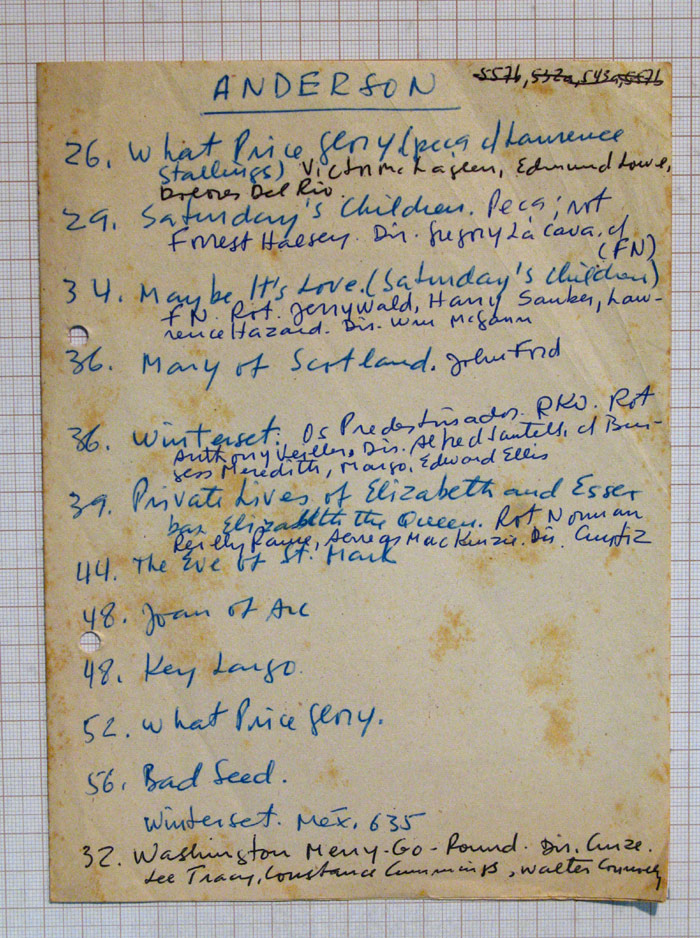 ANDERSON
557b, 532a, 543a, 557b
26. What Price Glory (peça c/ Laurence
Stallings) Victor McLaglen, Edmund Lowe,
Dolores Del Rio.
29. Saturday's Children. Peça; rot
Forrest Halsey. Dir. Gregory La Cava. cf
(FN)
34. Maybe It's Love. (Saturday's Children)
FN. Rot. Jerry Wald, Harry Sauber, Law-
rence Hazard. Dir. Wm McGann
36. Mary of Scotland. John Ford
36. Winterset. Os Predestinados. RKO. Rot
Anthony Veiller, Dir. Alfred Santell, cf Bur-
gess Meredith, Margo, Edward Ellis
39. Private Lives of Elizabeth and Essex
bas. Elizabeth the Queen. Rot Norman
Reilly Raine, Aeneas MacKenzie. Dir. Curtiz
44. The Eve of St. Mark
48. Joan of Arc
48. Key Largo.
52. What Price Glory.
56. Bad Seed.
Winterset. Mex. 635
32. Washington Merry-Go-Round. Dir. Cruze.
Lee Tracy, Constance Cummings, Walter Connolly